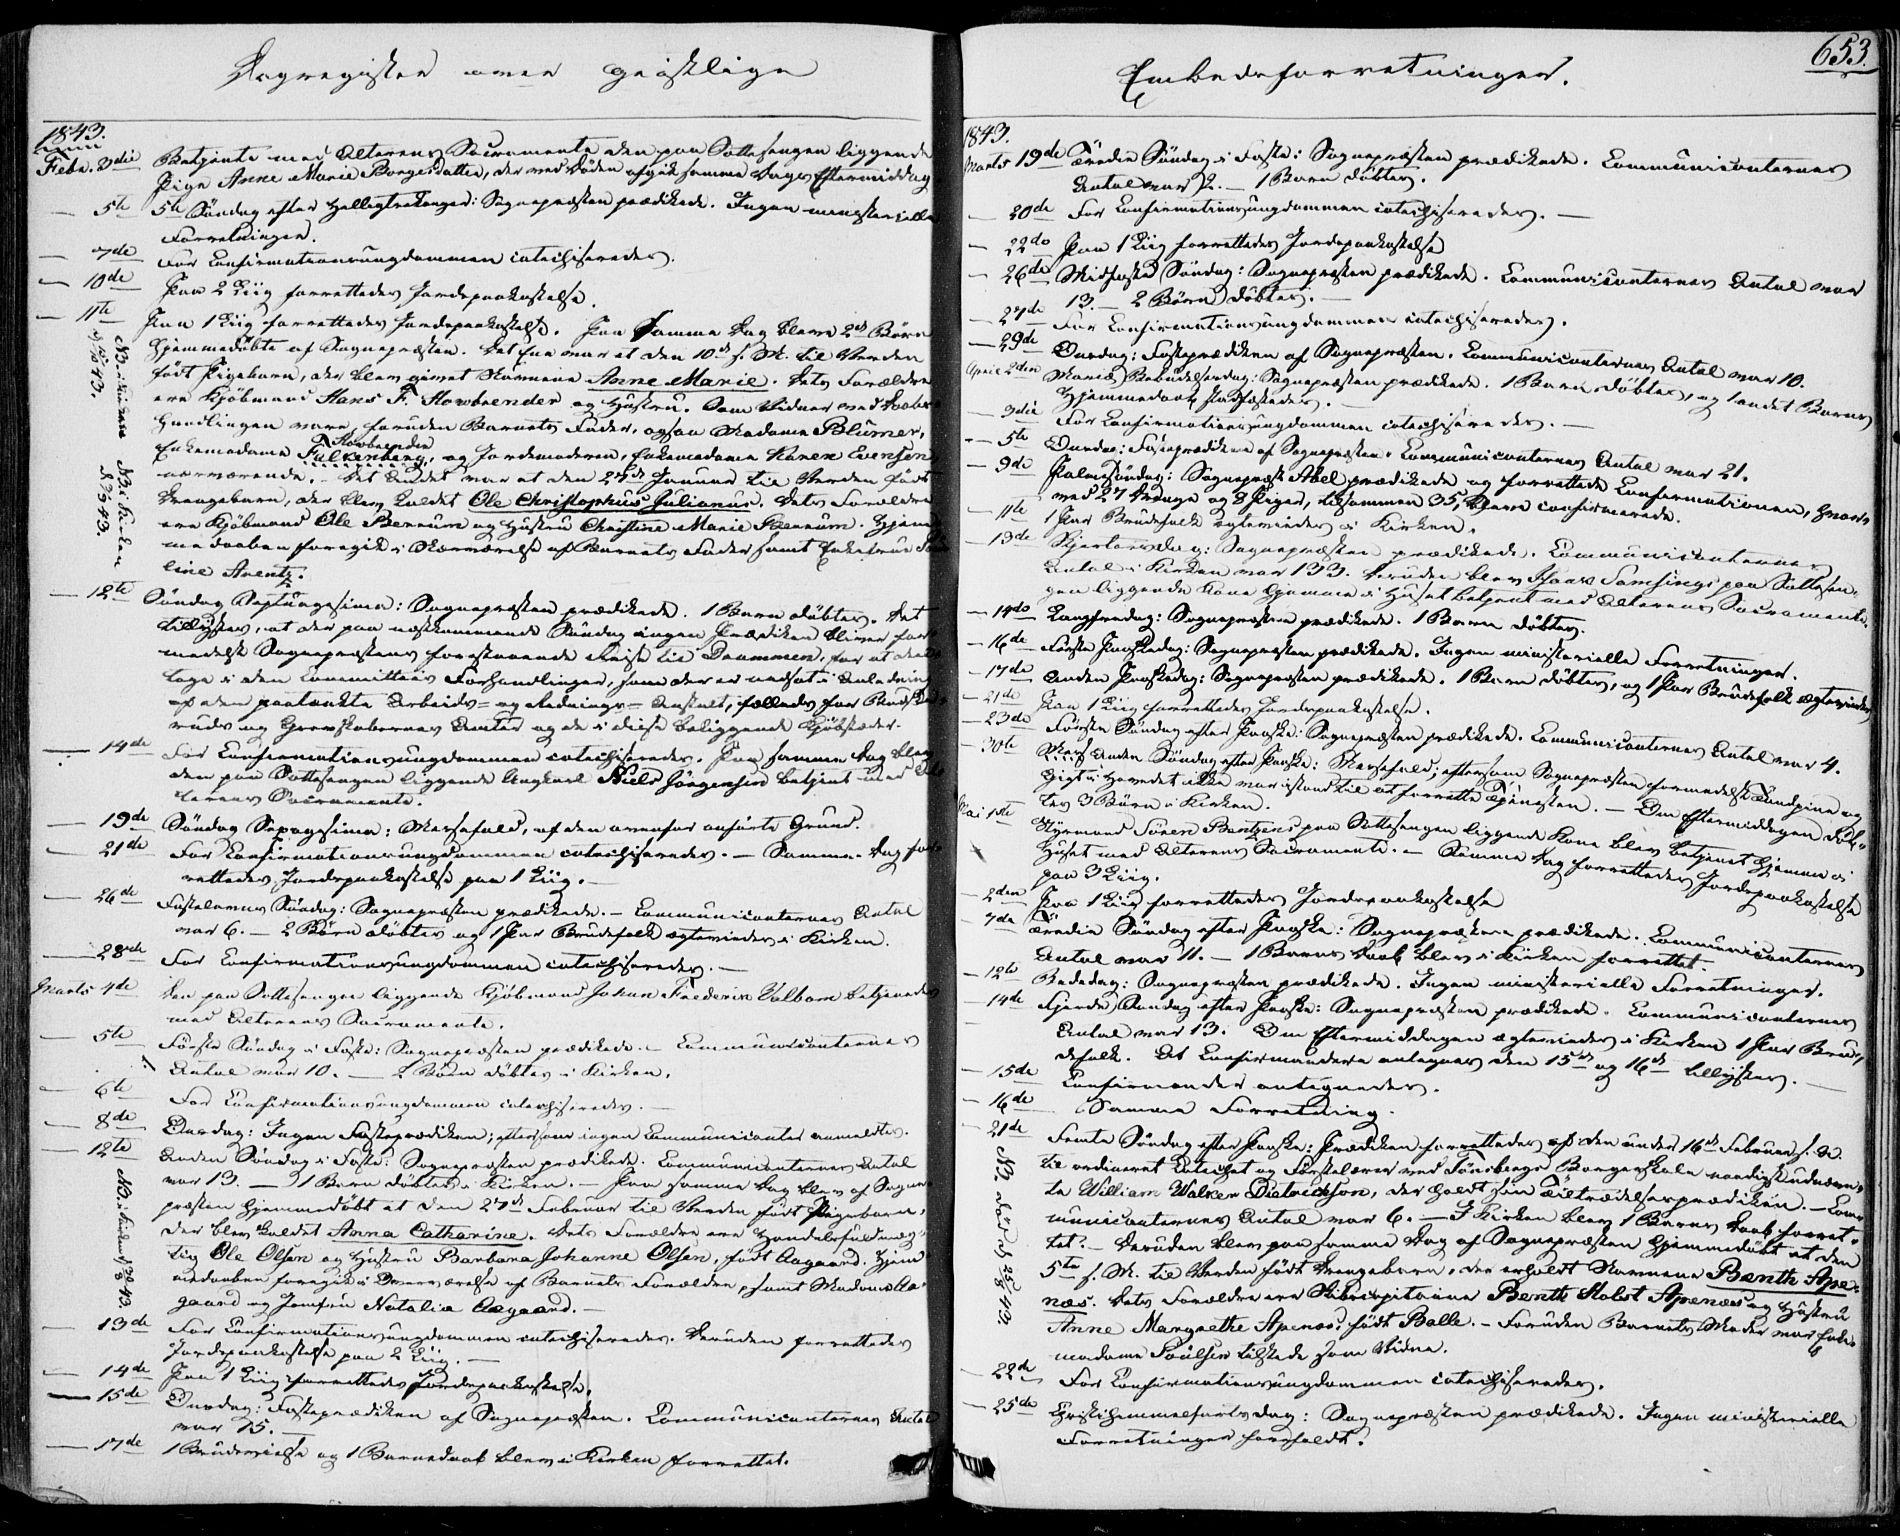 Dagregister over geistlige
1843.
Febr. 3die Betjente med Alterens Sacramente den paa Sottesengen liggende
Pige Anne Marie Borgersdatter, der ved Døden afgik samme Dags Eftermiddag
— 5te 5te Søndag efter Helligtrekonger: Sognepræsten prædikede. Ingen ministerielle
Forretninger.
— 7de For Confirmationsungdommen catechiseredes.
— 10de Paa 2 Liig forrettedes Jordspaakastelse.
— 11te Paa 1 Liig forrettedes Jordspaakastelse. Paa samme Dag bleve 2de Børn
hjemmedøbte af Sognepræsten. Det Ene var et den 10de f. M. til Verden
født Pigebarn, der blev givet Navnene Anne Marie. Dets Forældre
ere Kjøbmand Hans F. Howbrender og Hustru. Som Vidner ved Daabs-
handlingen vare, foruden Barnets Fader, ogsaa Madame Blumer,
Howbrender
Enkemadame Falkenberg, og Jordemoderen, Enkemadame Karen Evensen
nærværende. — Det Andet var et den 27de Januar til Verden født
Drengebarn, der blev kaldet Ole Christophius Julianus. Dets Forældre
ere Kjøbmand Ole Berrum og Hustru Christine Marie Berrum. Hjem-
medaaben foregik i Nærværelse af Barnets Fader samt Enkefrue
line Arentz.
— 12te Søndag Septuagesima: Sognepræsten prædikede. 1 Barn døbtes. Det
tillystes, at der paa næstkommende Søndag ingen Prædiken bliver for-
medelst Sognepræstens forestaaende Reise til Drammen, for at del-
tage i den Committees Forhandlinger, som der er nedsat i Anledning
af den paatænkte Arbeids- og Rednings-Anstalt, fælleds for Buskke-
ruds og Grevskabernes Amter og de i disse beliggende Kjøbstæder.
— 14de For Confirmationsungdommen catechiseredes. Paa samme Dag blev
den paa Sottesengen liggende Ungkarl Niels Jörgensen betjent med Al-
terens Sacramente.
— 19de Søndag Sexagesima: Messefald, af den ovenfor anførte Grund.
— 21de For Confirmationsungdommen catechiseredes. — Samme Dag for-
rettedes Jordspaakastelse paa 1 Liig. —
— 26de Fastelavns Søndag: Sognepræsten prædikede. — Communicanternes Antal
var 6. — 2 Børn døbtes og 1 Par Brudefolk ægteviedes i Kirken.
— 28de For Confirmationsungdommen catechiseredes. —
Marts 4de Den paa Sottesengen liggende Kjøbmand Johan Frederik Valbom betjenedes
med Alterens Sacramente.
— 5te Første Søndag i Faste: Sognepræsten prædikede. — Communicanternes
Antal var 10. — 2 Børn døbtes i Kirken.
— 6te For Confirmationsungdommen catechiseredes. —
— 8de Onsdag: Ingen Fasteprædiken; eftersom ingen Communicanter anmeldtes.
— 12te Anden Søndag i Faste: Sognepræsten prædikede. Communicanternes Antal
var 13. — 1 Barn døbtes i Kirken. — Paa samme Dag blev af Sogne-
præsten hjemmedøbt et den 27de Februar til Verden født Pigebarn,
der blev kaldet Anna Catharine. Dets Forældre ere Handelsfuldmæg-
tig Ole Olsen og Hustru Barbara Johanne Olsen, født Aagaard. Hjem-
medaaben foregik i Nærværelse af Barnets Forældre, samt Madame Aa-
gaard og Jomfru Natalia Aagaard. —
— 13de For Confirmationsungdommen catechiseredes. Desuden forrettedes
Jordspaakastelse paa 2 Liig. —
— 14de Paa 1 Liig forrettedes Jordspaakastelse.
— 15de Onsdag: Fasteprædiken af Sognepræsten. Communicanternes Antal
var 15. —
— 17de 1 Brudevielse og 1 Barnedaab blev i Kirken forrettet.
Embedsforretninger.
653.
1843.
Marts 19de Tredie Søndag i Faste: Sognepræsten prædikede. Communicanternes
Antal var 12. — 1 Barn døbtes.
— 20de For Confirmationsungdommen catechiseredes. —
— 22de Paa 1 Liig forrettedes Jordspaakastelse
— 26de Midfaste Søndag: Sognepræsten prædikede. Communicanternes Antal var
13. — 2 Børn døbtes. —
— 27de For Confirmationsungdommen catechiseredes.
— 29de Onsdag: Fasteprædiken af Sognepræsten. Communicanternes Antal var 10.
April 2den Mariæ Bebudelsesdag: Sognepræsten prædikede. 1 Barn døbtes, og 1 andet Barns
Hjemmedaab stadfæstedes. —
— 3die For Confirmationsungdommen catechiseredes. —
— 5te Onsdag: Fasteprædiken af Sognepræsten. Communicanternes Antal var 21.
— 9de Palmesøndag: Sognepræst Abel prædikede og forrettede Confirmationen, hvor-
ved 27 Drenge og 8 Piger, tilsammen 35, bleve confirmerede.
— 11te 1 Par Brudefolk ægteviedes i Kirken.
— 13de Skjertorsdag: Sognepræsten prædikede. Communicanternes
Antal i Kirken var 133. Desuden blev Isaac Samsings paa Sottesen-
gen liggende Kone hjemme i Huset betjent med Alterens Sacramente.
— 14de Langfredag: Sognepræsten prædikede. 1 Barn døbtes.
— 16de Første Paaskedag: Sognepræsten prædikede. Ingen ministerielle Forretninger.
— 17de Anden Paaskedag: Sognepræsten prædikede. 1 Barn døbtes, og 1 Par Brudefolk ægteviedes
— 21de Paa 1 Liig forrettedes Jordspaakastelse.
— 23de Første Søndag efter Paaske: Sognepræsten prædikede. Communicanternes Antal var 4.
— 30te Anden Søndag efter Paaske: Messefald; eftersom Sognepræsten formedelst Tandpine og
Gigt i Hovedet ikke var istand til at forrette Tjenesten. — Om Eftermiddagen døb-
tes 3 Børn i Kirken.
Mai 1ste Styrmand Søren Bentzens paa Sottesengen liggende Kone blev betjent hjemme i
Huset med Alterens Sacramente. — Samme Dag forrettedes Jordspaakastelse
paa 3 Liig.
— 2den Paa 1 Liig forrettedes Jordspaakastelse
— 7de Tredie Søndag efter Paaske: Sognepræsten prædikede. Communicanternes
Antal var 11. — 1 Barns Daab blev i Kirken forrettet.
— 12te Bededag: Sognepræsten prædikede. Ingen ministerielle Forretninger.
— 14de Fjerde Søndag efter Paaske: Sognepræsten prædikede. Communicanternes
Antal var 13. Om Eftermiddagen ægteviedes i Kirken 1 Par Bru-
defolk. At Confirmandere antegnes den 15de og 16de tillystes. —
— 15de Confirmander antegnedes.
— 16de Samme Forretning.
— 21de Femte Søndag efter Paaske: Prædiken forrettedes af den under 16de Februar f. A.
til ordineret Catechet og Førstelærer ved Tønsbergs Borgerskole naadigst udnævn-
te William Walker Dietrichson, der holdt sin Tiltrædelsesprædiken. — Com-
municanternes Antal var 6. — I Kirken blev 1 Barns Daab forret-
tet. — Desuden blev paa samme Dag af Sognepræsten hjemmedøbt et den
5te f. M. til Verden født Drengebarn, der erholdt Navnene Benth Ape-
næs. Dets Forældre ere Skibscapitaine Benth Holst Apenæs og Hustru
Anne Margrethe Apenæs, født Balle. — Foruden Barnets Moder var Enke-
madame Poulsen tilstede som Vidne.
— 22de For Confirmationsungdommen catechiseredes.
— 25de Christi Himmelfarts Dag: Sognepræsten prædikede. Ingen ministerielle
Forretninger forefaldt.